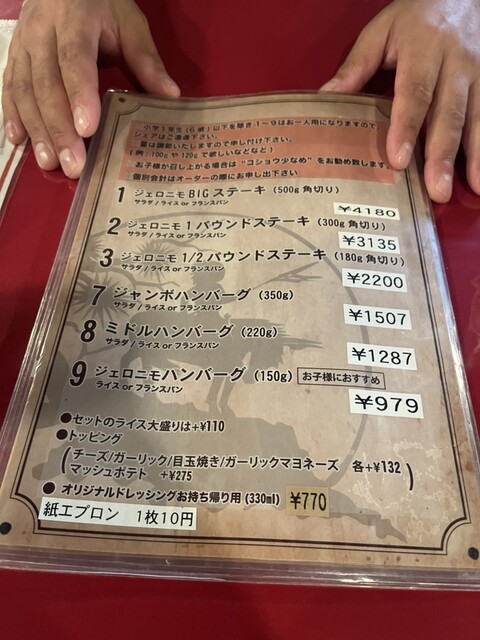 小学1年生(6歳)以下を除き1～9はお一人用になりますので
シェアはご遠慮下さい。
量は調節いたしますので申し付け下さい。
(例:100gや120gで欲しいなどなど)
お子様が召し上がる場合は"コショウ少なめ"をお勧め致します
個別会計はオーダーの際にお申し出下さい
1 ジェロニモBIGステーキ (500g 角切り)
サラダ/ライス or フランスパン
¥4180
2 ジェロニモ1パウンドステーキ (300g 角切り)
サラダ/ライス or フランスパン
¥3135
3 ジェロニモ1/2パウンドステーキ (180g 角切り)
サラダ/ライス or フランスパン
¥2200
7 ジャンボハンバーグ (350g)
サラダ/ライス or フランスパン
¥1507
8 ミドルハンバーグ (220g)
サラダ/ライス or フランスパン
¥1287
9 ジェロニモハンバーグ (150g) お子様におすすめ
ライス or フランスパン
¥979
●セットのライス大盛りは+¥110
●トッピング
(チーズ/ガーリック/目玉焼き/ガーリックマヨネーズ 各+¥132
マッシュポテト +¥275)
● オリジナルドレッシングお持ち帰り用 (330ml) ¥770
紙エプロン 1枚10円